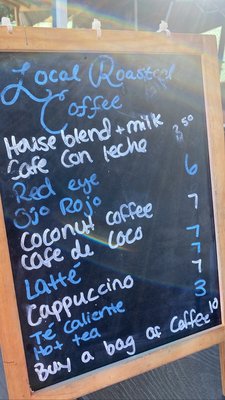 Local Roasted
Coffee
House blend + milk 2.50
Cafe con leche
Red eye 6
Ojo Rojo
Coconut coffee 7
cafe de coco
Latté 7
Cappuccino 7
Té caliente 3
Hot tea
Buy a bag of Coffee 10